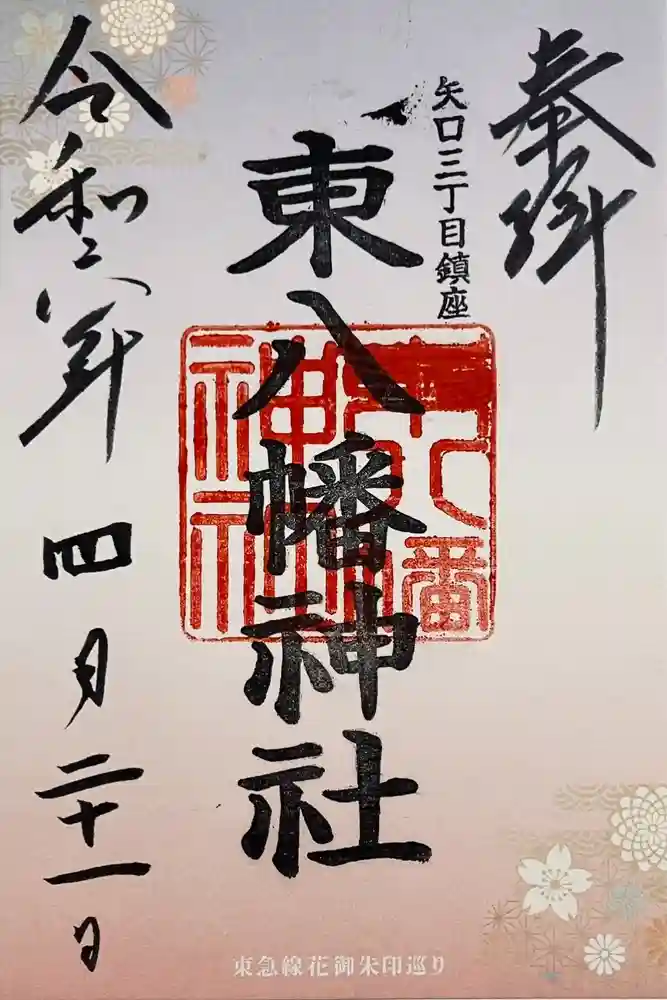 奉拝
矢口三丁目鎮座
東八幡神社
八幡神社
令和六年四月二十一日
東急線花御朱印巡り